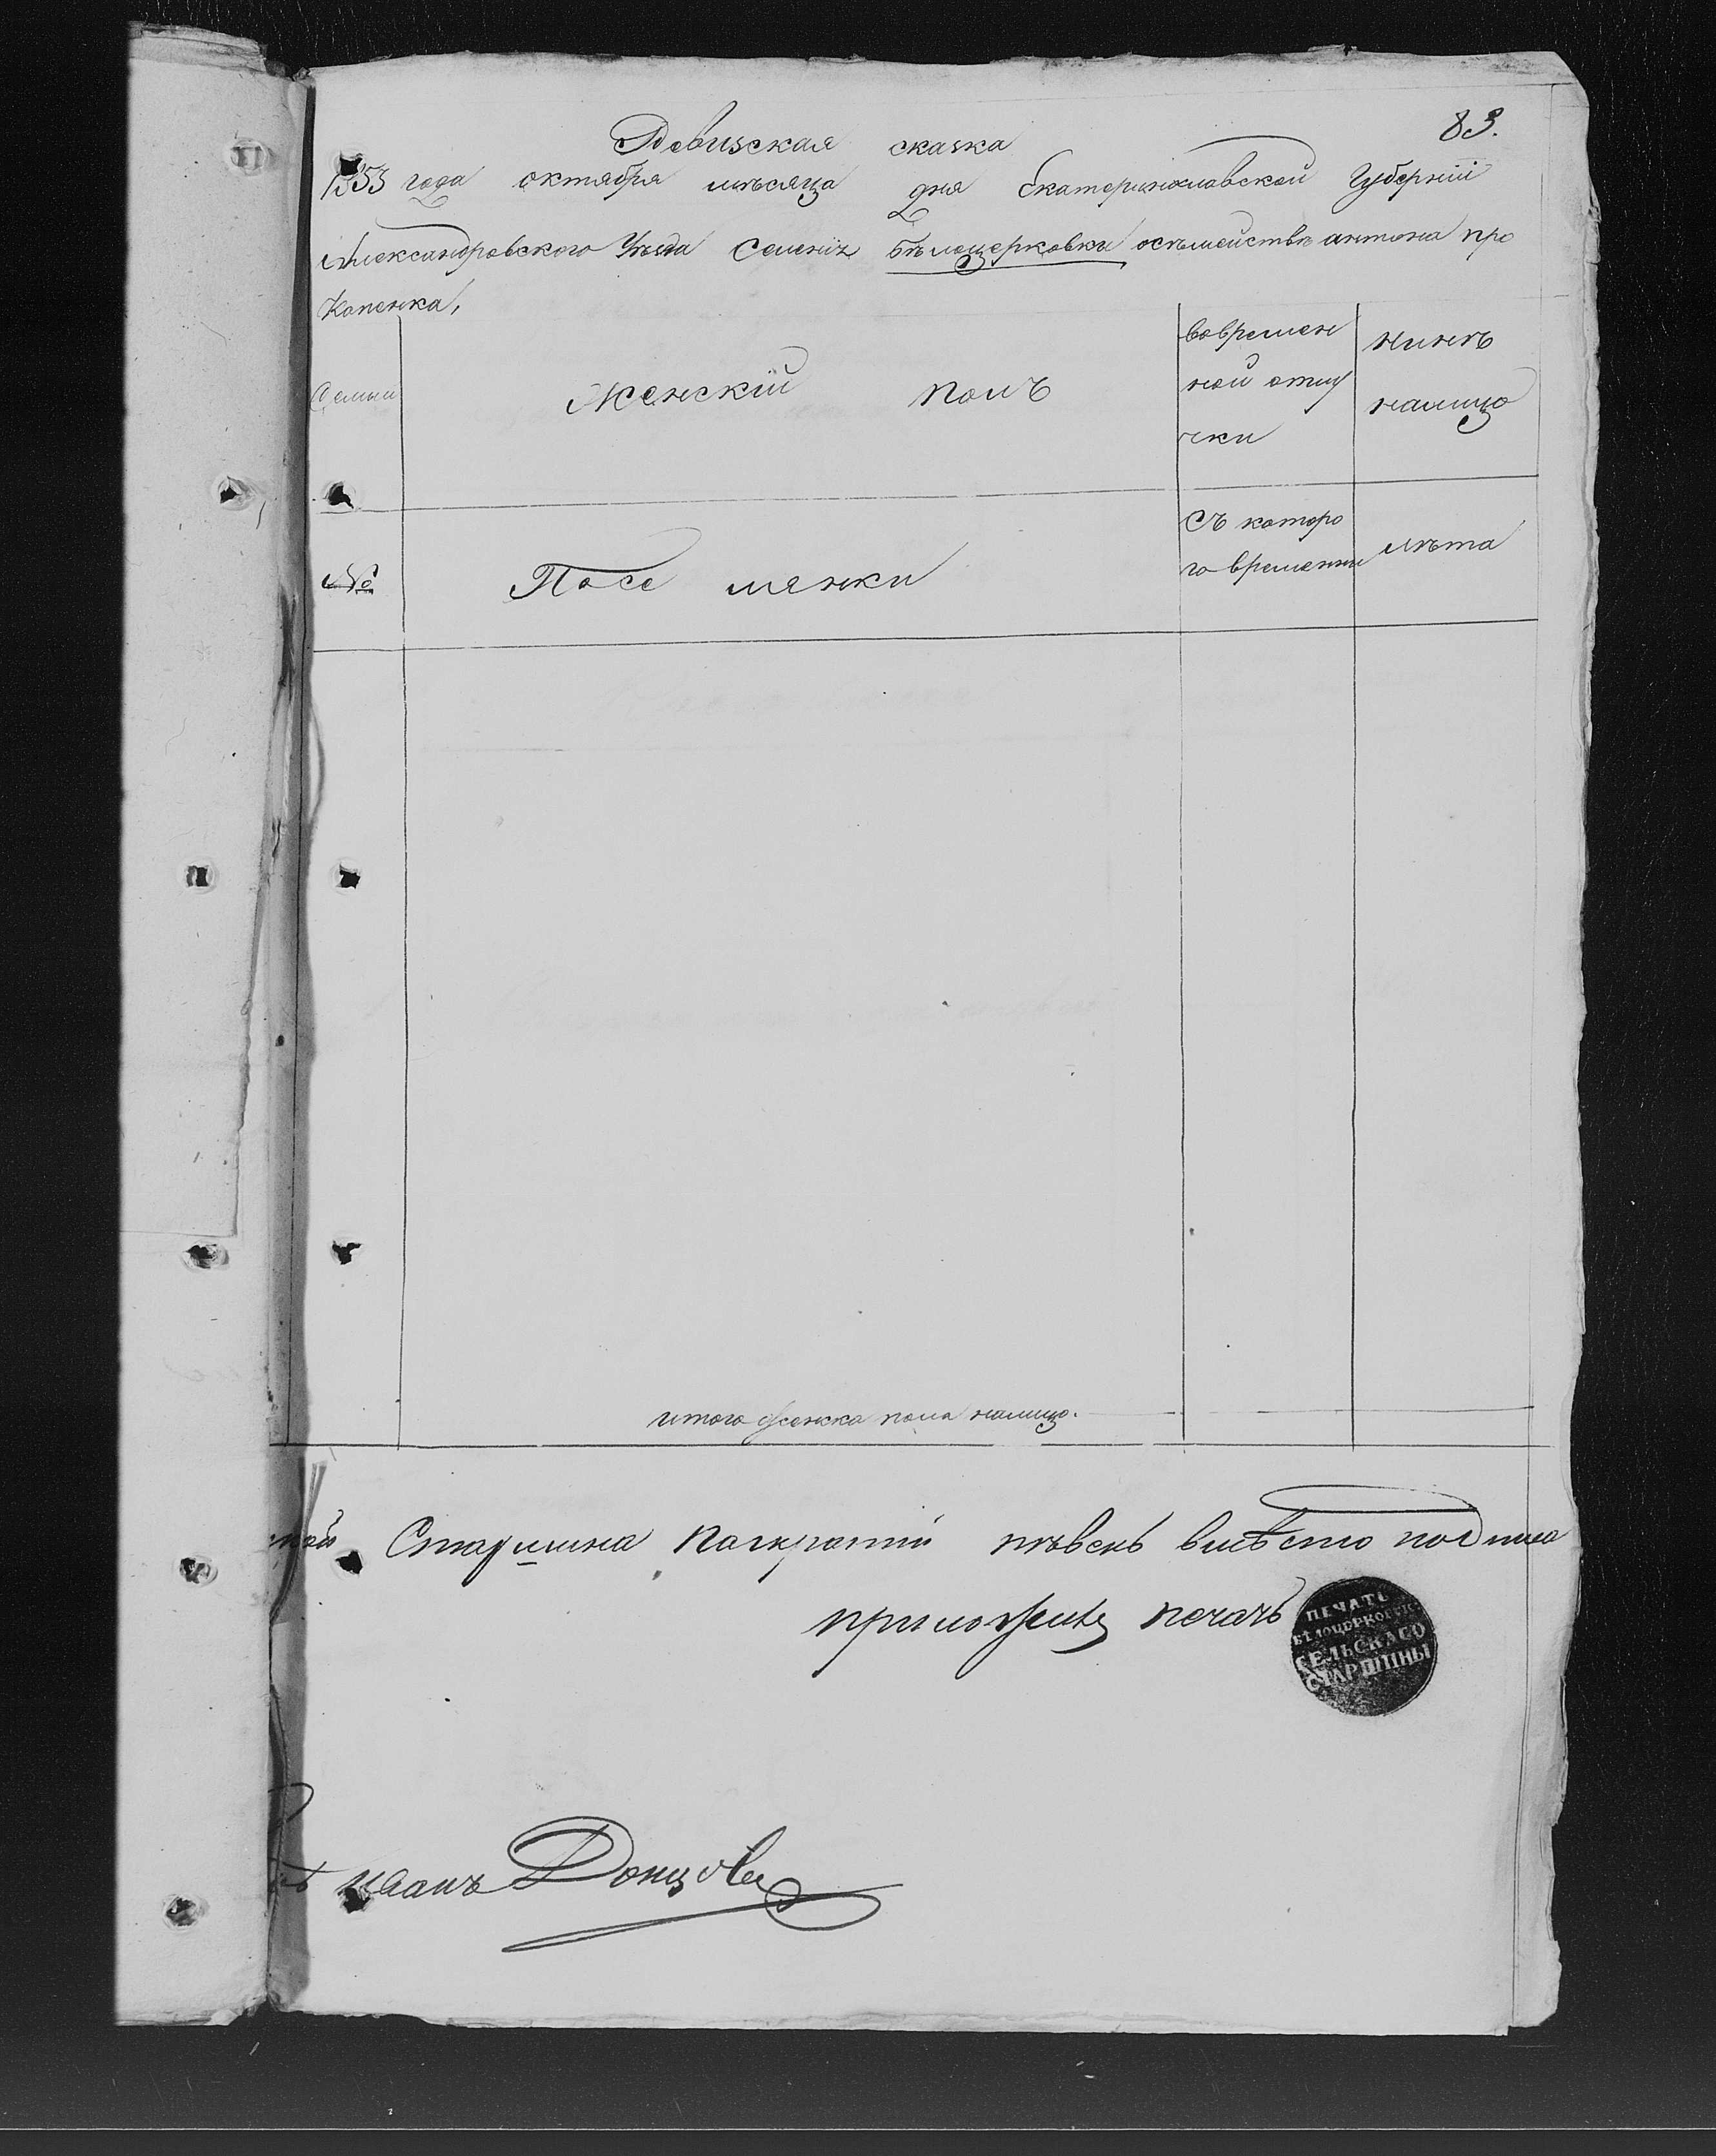 83.
Ревизская сказка
1853 года октября мѣсяца дня Екатеринославской Губерніи
Александровского Уѣзда Селенія Бѣлоцерковки осѣмействѣ антона про
Копенка,
Семьи
Женскій полъ
вовремен
ной отлу
чки
нинѣ
налицо
№
Посе лянки
Съ которо
го временни
лѣта
итого женска пола налицо.
Старшина Панкратій пѣвень вмѣсто подписа
приложилъ печать
ПЕЧАТЬ
БѢЛОЦЕРКОВСК
СЕЛЬСКАГО
СТАРШИНЫ
иванъ Донцовъ